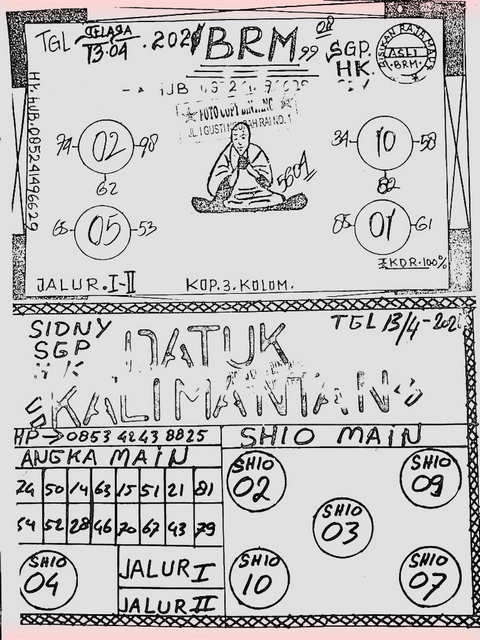 TGL SELASA 13.04.2021
BRM 99
SGP.
HK.
BISIKAN RAJA MAYA
ASLI
BRM.
HP. HUB. 085241496629
FOTO COPY
JL I GUSTI NGURAH RAI NO. 1
02
98
62
05
65
53
34
10
58
82
01
85
61
5601
KDR.100%
JALUR. I-II
KOP.3. KOLOM.
SIDNY
SGP
TGL 13/4-202
DATUK
KALIMANTAN
HP → 0853 4243 8825
ANGKA MAIN
74 50 14 63 15 51 21 81
54 52 28 46 70 67 43 79
SHIO 04
JALUR I
JALUR II
SHIO MAIN
SHIO 02
SHIO 09
SHIO 03
SHIO 10
SHIO 07